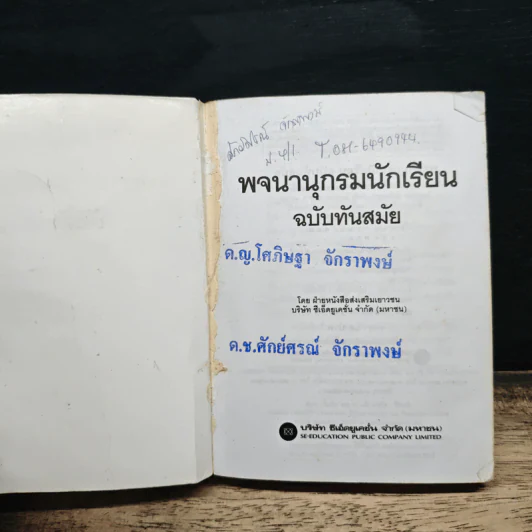 ป.4/1 T.081-6490994.
พจนานุกรมนักเรียน
ฉบับทันสมัย
ด.ญ.โศภิษฐา จักราพงษ์
โดย ฝ่ายหนังสือส่งเสริมเยาวชน
บริษัท ซีเอ็ดยูเคชั่น จำกัด (มหาชน)
ด.ช.ศักย์ศรณ์ จักราพงษ์
บริษัท ซีเอ็ดยูเคชั่น จำกัด (มหาชน)
SE-EDUCATION PUBLIC COMPANY LIMITED